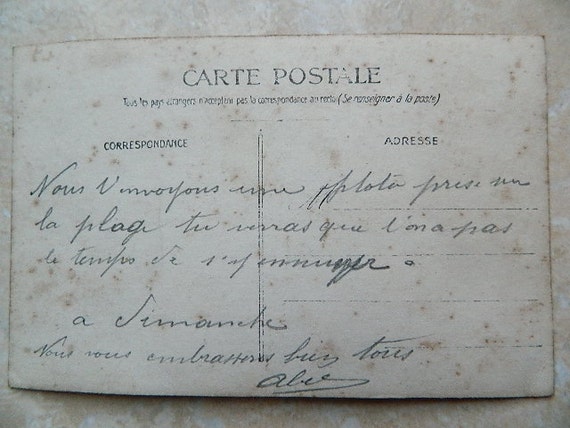 CARTE POSTALE
Tous les pays étrangers n'acceptent pas la correspondance au recto (Se renseigner à la poste)
CORRESPONDANCE
ADRESSE
Nous t'envoyons une photo prise sur
la plage tu verras que l'on a pas
le temps de s'y ennuyer
a Dimanche
Nous vous embrassons bien tous